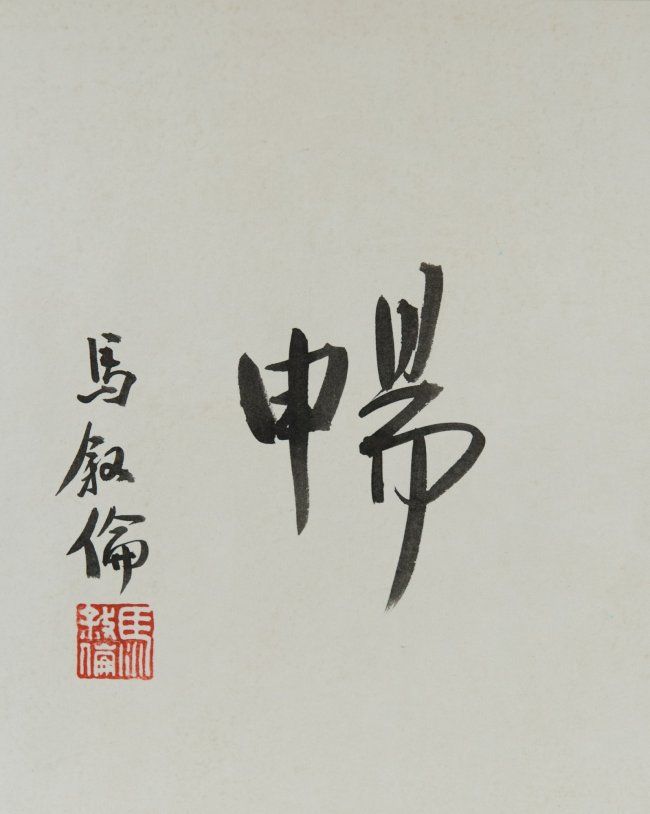 暢
馬叙倫
馬叙倫